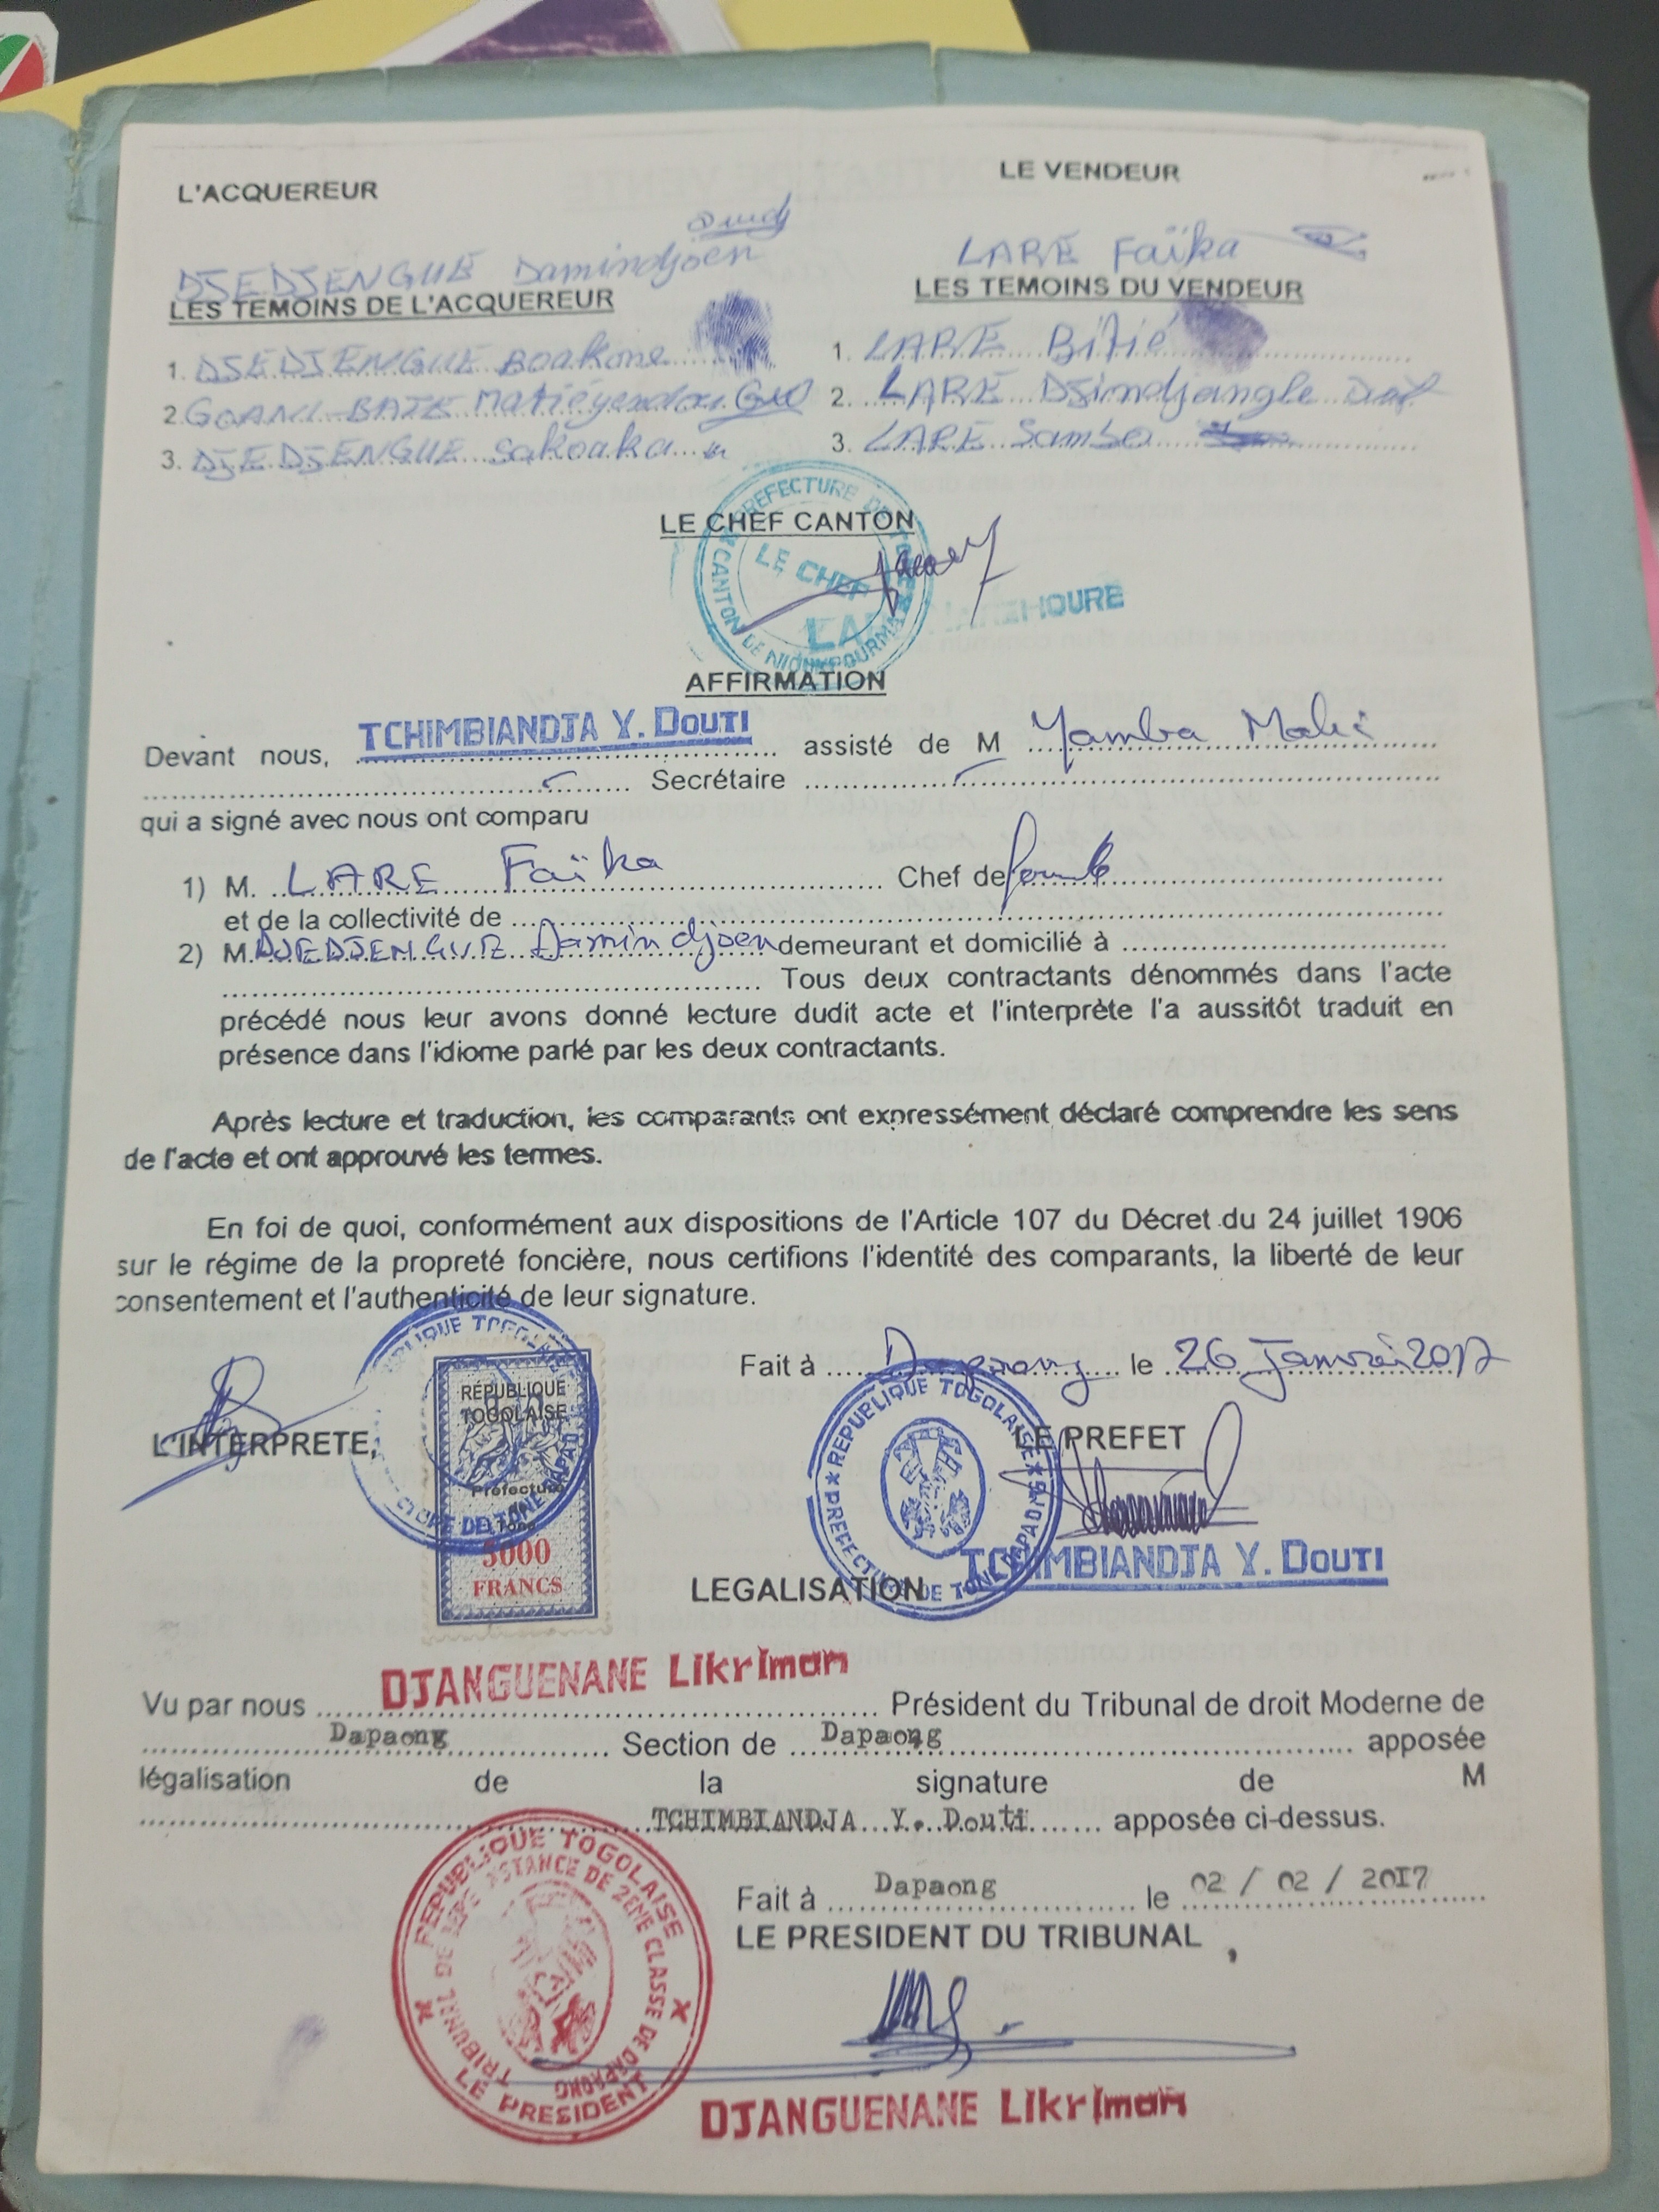 L'ACQUEREUR
LE VENDEUR
DJEDJENGUE Damindjoen
LARE Faïka
LES TEMOINS DE L'ACQUEREUR
LES TEMOINS DU VENDEUR
1. DJEDJENGUE Boakone
1. LARE Bitié
2. GOANI BATE Matiéyendou
2. LARE Djindjangle
3. DJEDJENGUE Sakoaka
3. LARE Samba
LE CHEF CANTON
PREFECTURE DE TONE
CANTON DE NIOUKPOURMA
LE CHEF
AFFIRMATION
Devant nous, TCHIMBIANDJA Y. DOUTI assisté de M Yamba
Secrétaire
qui a signé avec nous ont comparu
1) M. LARE Faïka Chef de
et de la collectivité de
2) M. DJEDJENGUE Damindjoen demeurant et domicilié à
Tous deux contractants dénommés dans l'acte
précédé nous leur avons donné lecture dudit acte et l'interprète l'a aussitôt traduit en
présence dans l'idiome parlé par les deux contractants.
Après lecture et traduction, les comparants ont expressément déclaré comprendre les sens
de l'acte et ont approuvé les termes.
En foi de quoi, conformément aux dispositions de l'Article 107 du Décret du 24 juillet 1906
sur le régime de la propreté foncière, nous certifions l'identité des comparants, la liberté de leur
consentement et l'authenticité de leur signature.
Fait à Dapaong le 26 Janvier 2017
L'INTERPRETE,
LE PREFET
RÉPUBLIQUE
TOGOLAISE
Préfecture
Tône
5000
FRANCS
REPUBLIQUE TOGOLAISE
PREFECTURE DE TONE DAPAONG
TCHIMBIANDJA Y. DOUTI
LEGALISATION
Vu par nous DJANGUENANE Likriman Président du Tribunal de droit Moderne de
Dapaong Section de Dapaong apposée
légalisation de la signature de M
TCHIMBIANDJA Y. Douti apposée ci-dessus.
Fait à Dapaong le 02 / 02 / 2017
LE PRESIDENT DU TRIBUNAL,
REPUBLIQUE TOGOLAISE
TRIBUNAL DE 1ERE INSTANCE DE 2EME CLASSE DE DAPAONG
LE PRESIDENT
DJANGUENANE Likriman